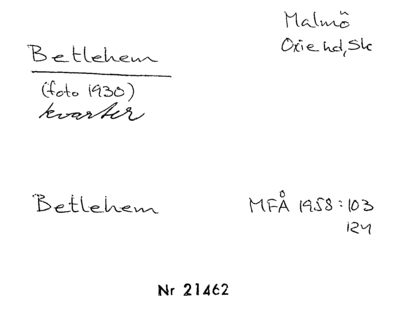 Malmö
Oxie hd, Sk
Betlehem
(foto 1930)
kvarter
Betlehem
MFÅ 1958:103
124
Nr 21462